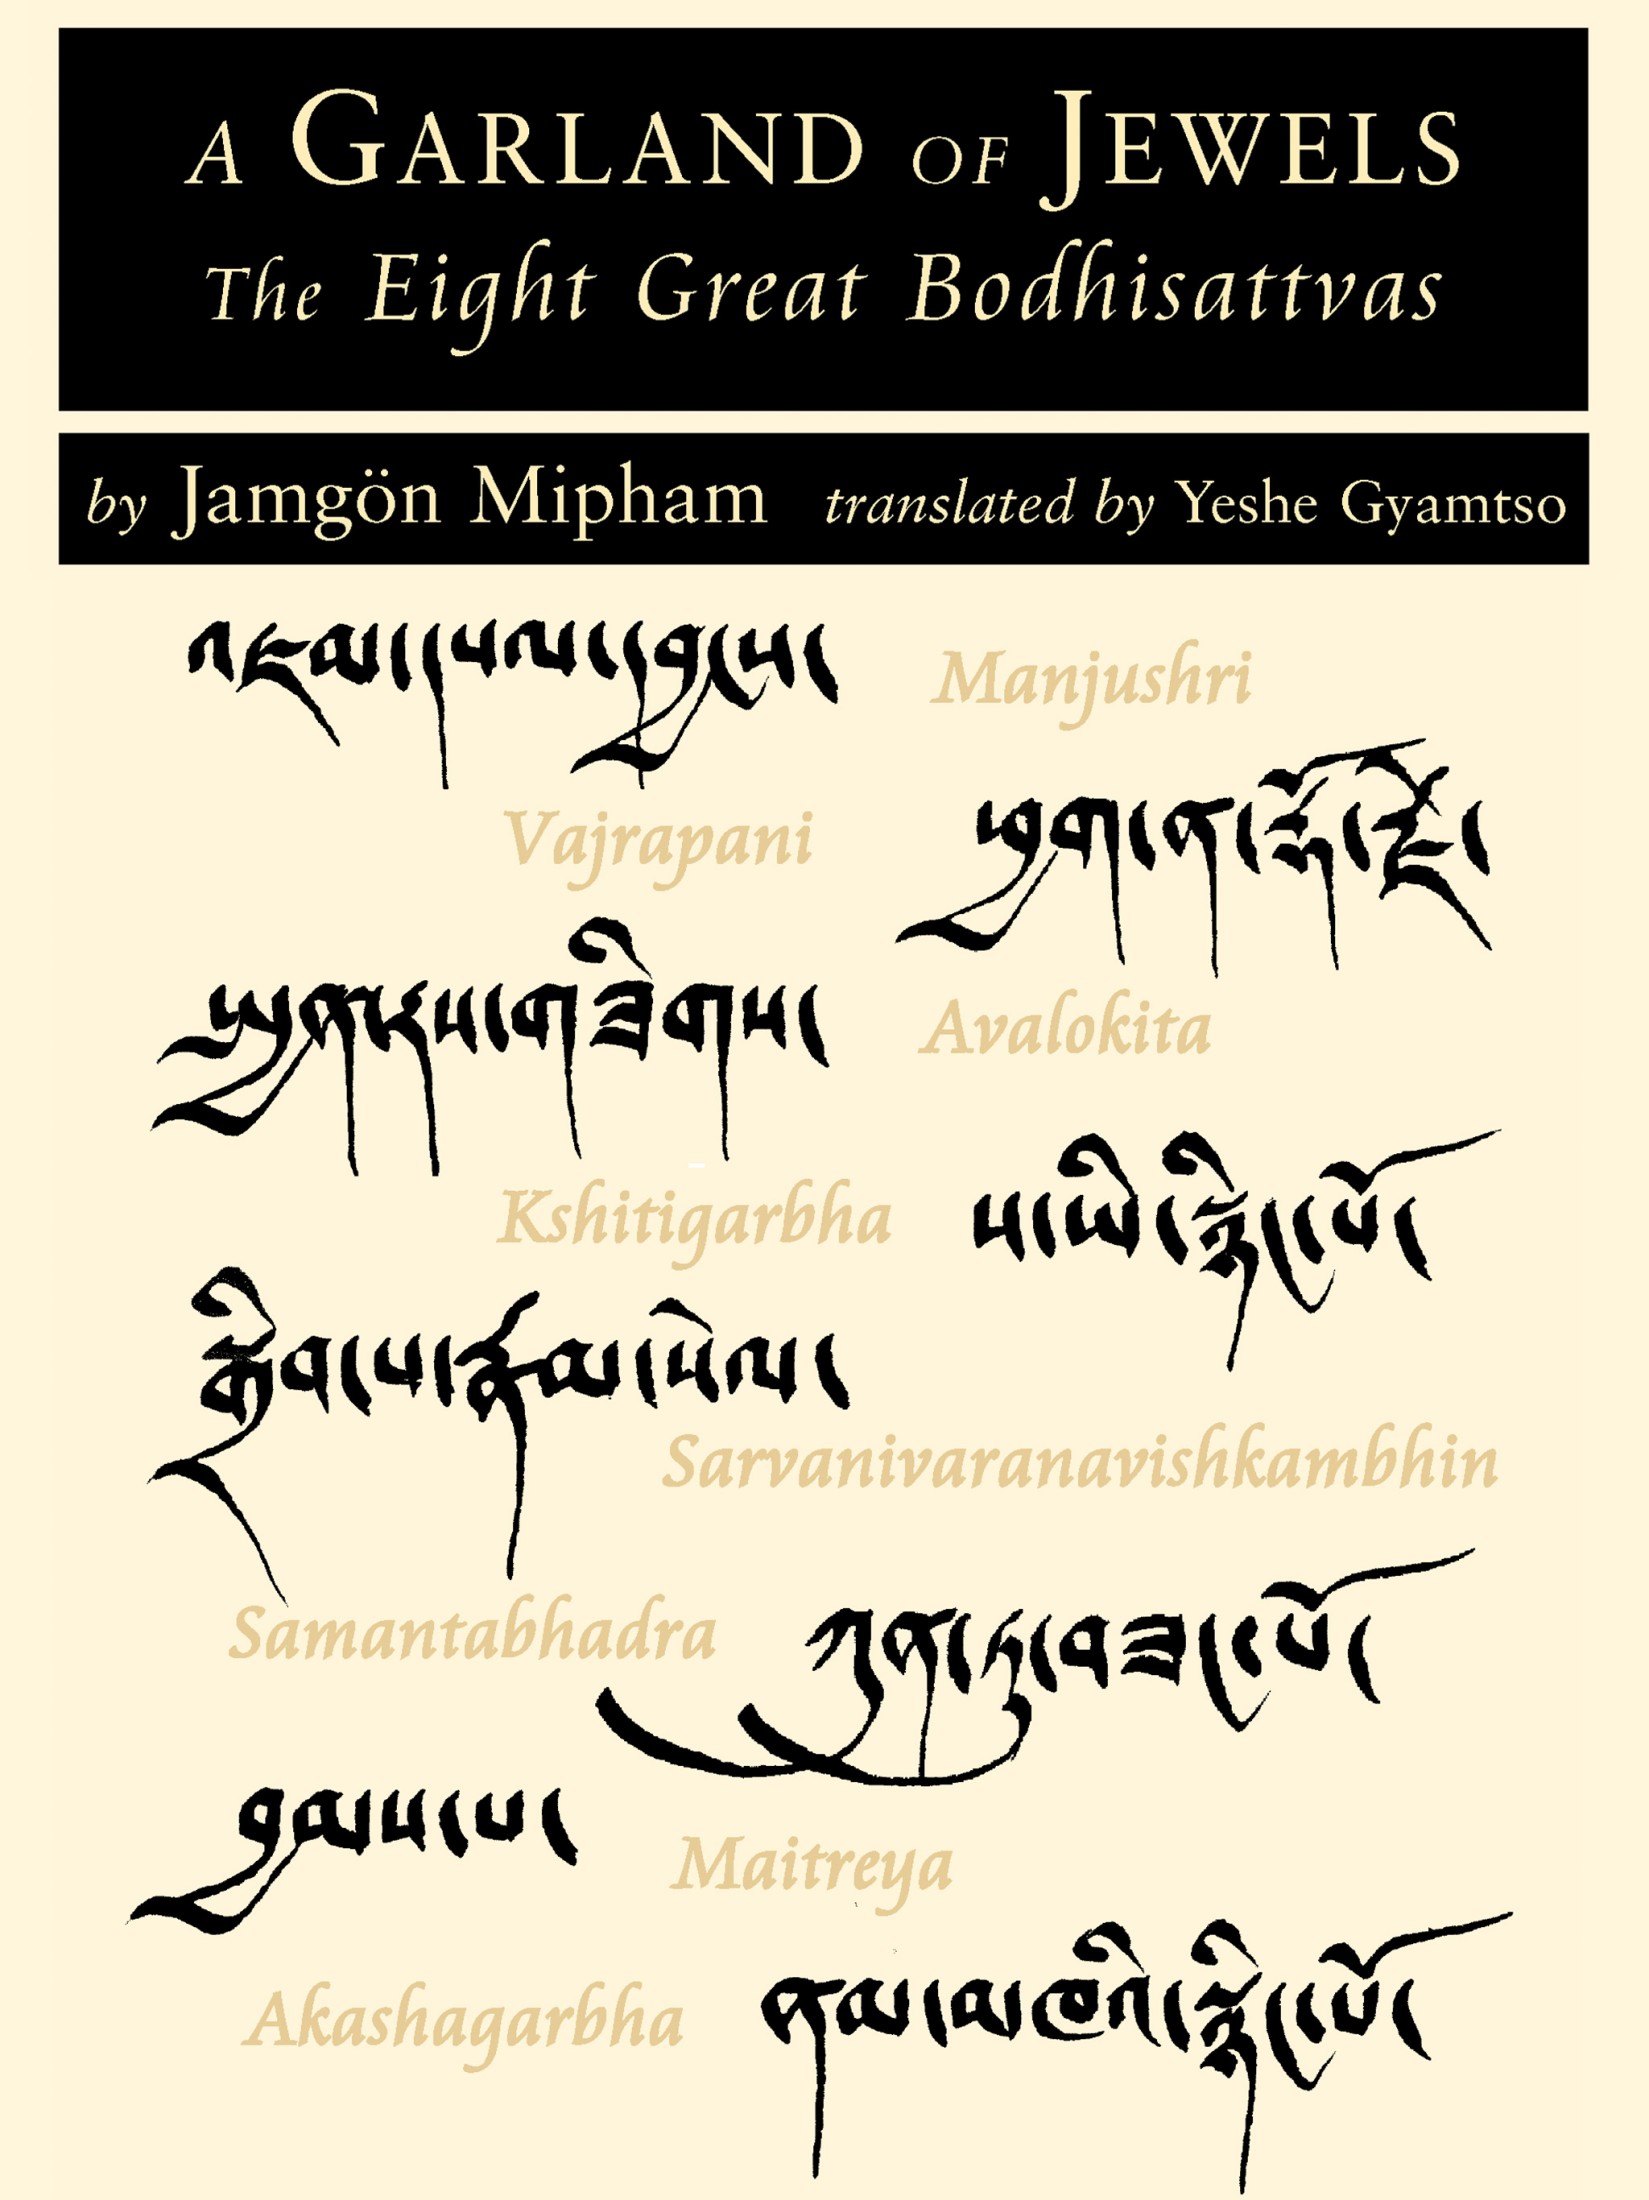 A GARLAND OF JEWELS
The Eight Great Bodhisattvas
by Jamgön Mipham translated by Yeshe Gyamtso
འཇམ་དཔལ་དབྱངས།
Manjushri
Vajrapani
ཕྱག་ན་རྡོ་རྗེ།
སྤྱན་རས་གཟིགས།
Avalokita
Kshitigarbha
ས་ཡི་སྙིང་པོ།
སྒྲིབ་པ་རྣམ་སེལ།
Sarvanivaranavishkambhin
Samantabhadra
ཀུན་ཏུ་བཟང་པོ།
བྱམས་པ།
Maitreya
Akashagarbha
ནམ་མཁའི་སྙིང་པོ།